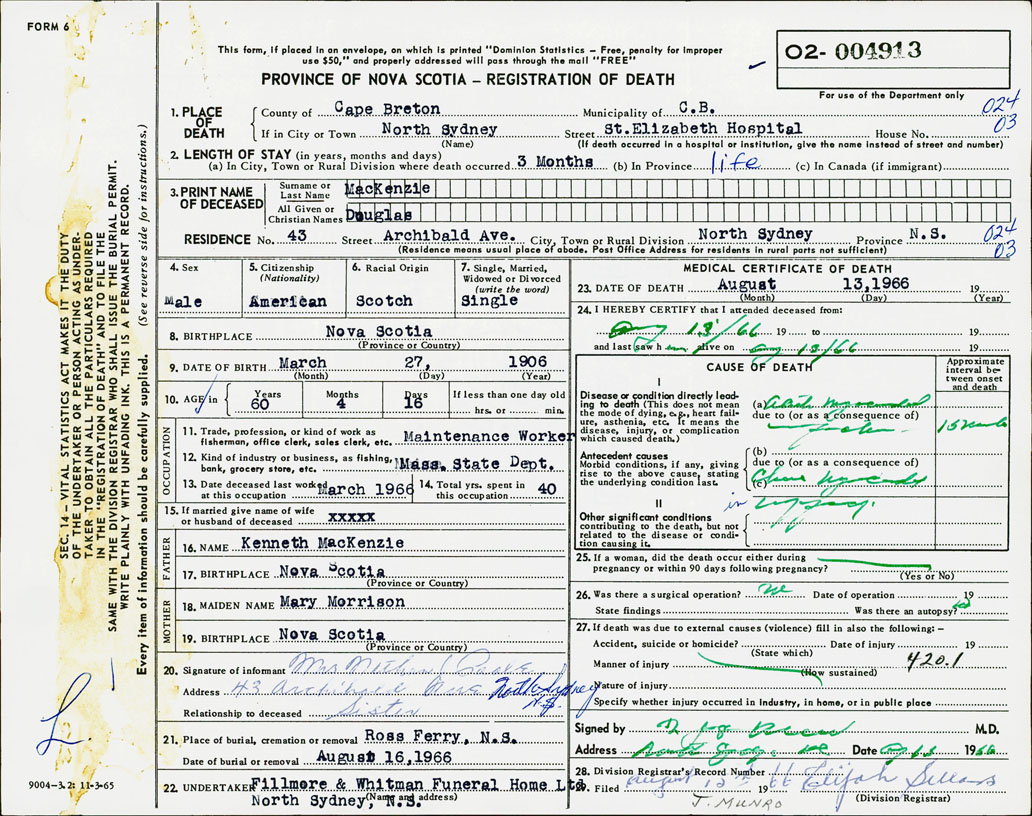 FORM 6
This form, if placed in an envelope, on which is printed "Dominion Statistics – Free, penalty for improper
use $50," and properly addressed will pass through the mail "FREE"
PROVINCE OF NOVA SCOTIA – REGISTRATION OF DEATH
02- 004913
For use of the Department only
024
03
1. PLACE OF DEATH
County of Cape Breton Municipality of C.B.
If in City or Town North Sydney Street St.Elizabeth Hospital House No.
(Name) (If death occurred in a hospital or institution, give the name instead of street and number)
2. LENGTH OF STAY (in years, months and days)
(a) In City, Town or Rural Division where death occurred 3 Months (b) In Province life (c) In Canada (if immigrant)
3. PRINT NAME OF DECEASED
Surname or Last Name MacKenzie
All Given or Christian Names Douglas
RESIDENCE No. 43 Street Archibald Ave. City, Town or Rural Division North Sydney Province N.S.
(Residence means usual place of abode. Post Office Address for residents in rural parts not sufficient)
024
03
4. Sex
Male
5. Citizenship
(Nationality)
American
6. Racial Origin
Scotch
7. Single, Married,
Widowed or Divorced
(write the word)
Single
8. BIRTHPLACE Nova Scotia
(Province or Country)
9. DATE OF BIRTH March 27, 1906
(Month) (Day) (Year)
10. AGE in
Years Months Days If less than one day old
60 4 16 hrs. or min.
OCCUPATION
11. Trade, profession, or kind of work as
fisherman, office clerk, sales clerk, etc. Maintenance Worker
12. Kind of industry or business, as fishing,
bank, grocery store, etc. Mass. State Dept.
13. Date deceased last worked
at this occupation March 1966
14. Total yrs. spent in
this occupation 40
15. If married give name of wife
or husband of deceased xxxxx
FATHER
16. NAME Kenneth MacKenzie
17. BIRTHPLACE Nova Scotia
(Province or Country)
MOTHER
18. MAIDEN NAME Mary Morrison
19. BIRTHPLACE Nova Scotia
(Province or Country)
20. Signature of informant Mrs
Address 43 Archibald Ave North Sydney
N.S.
Relationship to deceased Sister
21. Place of burial, cremation or removal Ross Ferry, N.S.
Date of burial or removal August 16,1966
22. UNDERTAKER Fillmore & Whitman Funeral Home Ltd.
North Sydney, N.S.
(Name and address)
MEDICAL CERTIFICATE OF DEATH
23. DATE OF DEATH August 13,1966 19
(Month) (Day) (Year)
24. I HEREBY CERTIFY that I attended deceased from:
Aug 13/66 19 to 19
and last saw h alive on Aug 13/66 19
CAUSE OF DEATH
Approximate
interval be-
tween onset
and death
I
Disease or condition directly lead-
ing to death (This does not mean
the mode of dying, e.g., heart fail-
ure, asthenia, etc. It means the
disease, injury, or complication
which caused death.)
(a)
due to (or as a consequence of)
Antecedent causes
Morbid conditions, if any, giving
rise to the above cause, stating
the underlying condition last.
(b)
due to (or as a consequence of)
(c)
II
Other significant conditions
contributing to the death, but not
related to the disease or condi-
tion causing it.
25. If a woman, did the death occur either during
pregnancy or within 90 days following pregnancy?
(Yes or No)
26. Was there a surgical operation? Date of operation 19
State findings Was there an autopsy?
27. If death was due to external causes (violence) fill in also the following: –
Accident, suicide or homicide? Date of injury 19
(State which)
420.1
Manner of injury
(How sustained)
Nature of injury
Specify whether injury occurred in industry, in home, or in public place
Signed by M.D.
Address Date 1966
28. Division Registrar's Record Number
29. Filed August 19 66 Elijah
(Division Registrar)
J. MUNRO
SEC. 14 – VITAL STATISTICS ACT MAKES IT THE DUTY
OF THE UNDERTAKER OR PERSON ACTING AS UNDER-
TAKER TO OBTAIN ALL THE PARTICULARS REQUIRED
IN THE "REGISTRATION OF DEATH" AND TO FILE THE
SAME WITH THE DIVISION REGISTRAR WHO SHALL ISSUE THE BURIAL PERMIT.
WRITE PLAINLY WITH UNFADING INK. THIS IS A PERMANENT RECORD.
Every item of information should be carefully supplied. (See reverse side for instructions.)
9004–3.2: 11-3-65